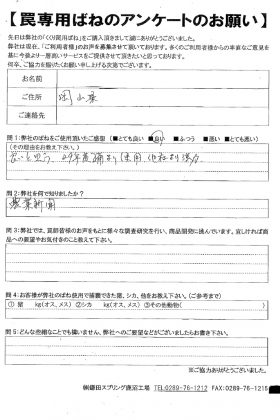 【罠専用ばねのアンケートのお願い】
先日は弊社の「くくり罠用ばね」をご購入頂きまして誠にありがとうございました。
弊社は現在、「ご利用者様」のお声を募集させて頂いております。多くのご利用者様からの率直なご意見を
基に今後より一層高いサービスをご提供させて頂きたいと思っております。
何卒、ご協力を賜りたくお願い申し上げる次第でございます。
お名前
ご住所 岡山県
ご連絡先
問1:弊社のばねをご使用頂いたご感想 ■とても良い ■良い ■ふつう ■悪い ■とても悪い)
(その理由をお教え下さい。)
良いと思う
問2:弊社を何で知りましたか?
農業新聞
問3:弊社では、罠師皆様のお声をもとに様々な調査研究を行い、商品開発に挑んでいます。宜しければ商
品への要望やお気付きのことをお教え下さい。
問4:お客様が弊社のばね使用で捕獲できた猪、シカ、他をお教え下さい。(ご参考まで)
①猪 kg(オス、メス) ②シカ kg(オス、メス) ③その他動物( )
問5:どんな些細なことでも構いません、弊社へのご要望などがございましたらお書き下さい。
※ご協力ありがとうございました。
㈱鎌田スプリング鹿沼工場 TEL0289-76-1212 FAX:0289-76-1215